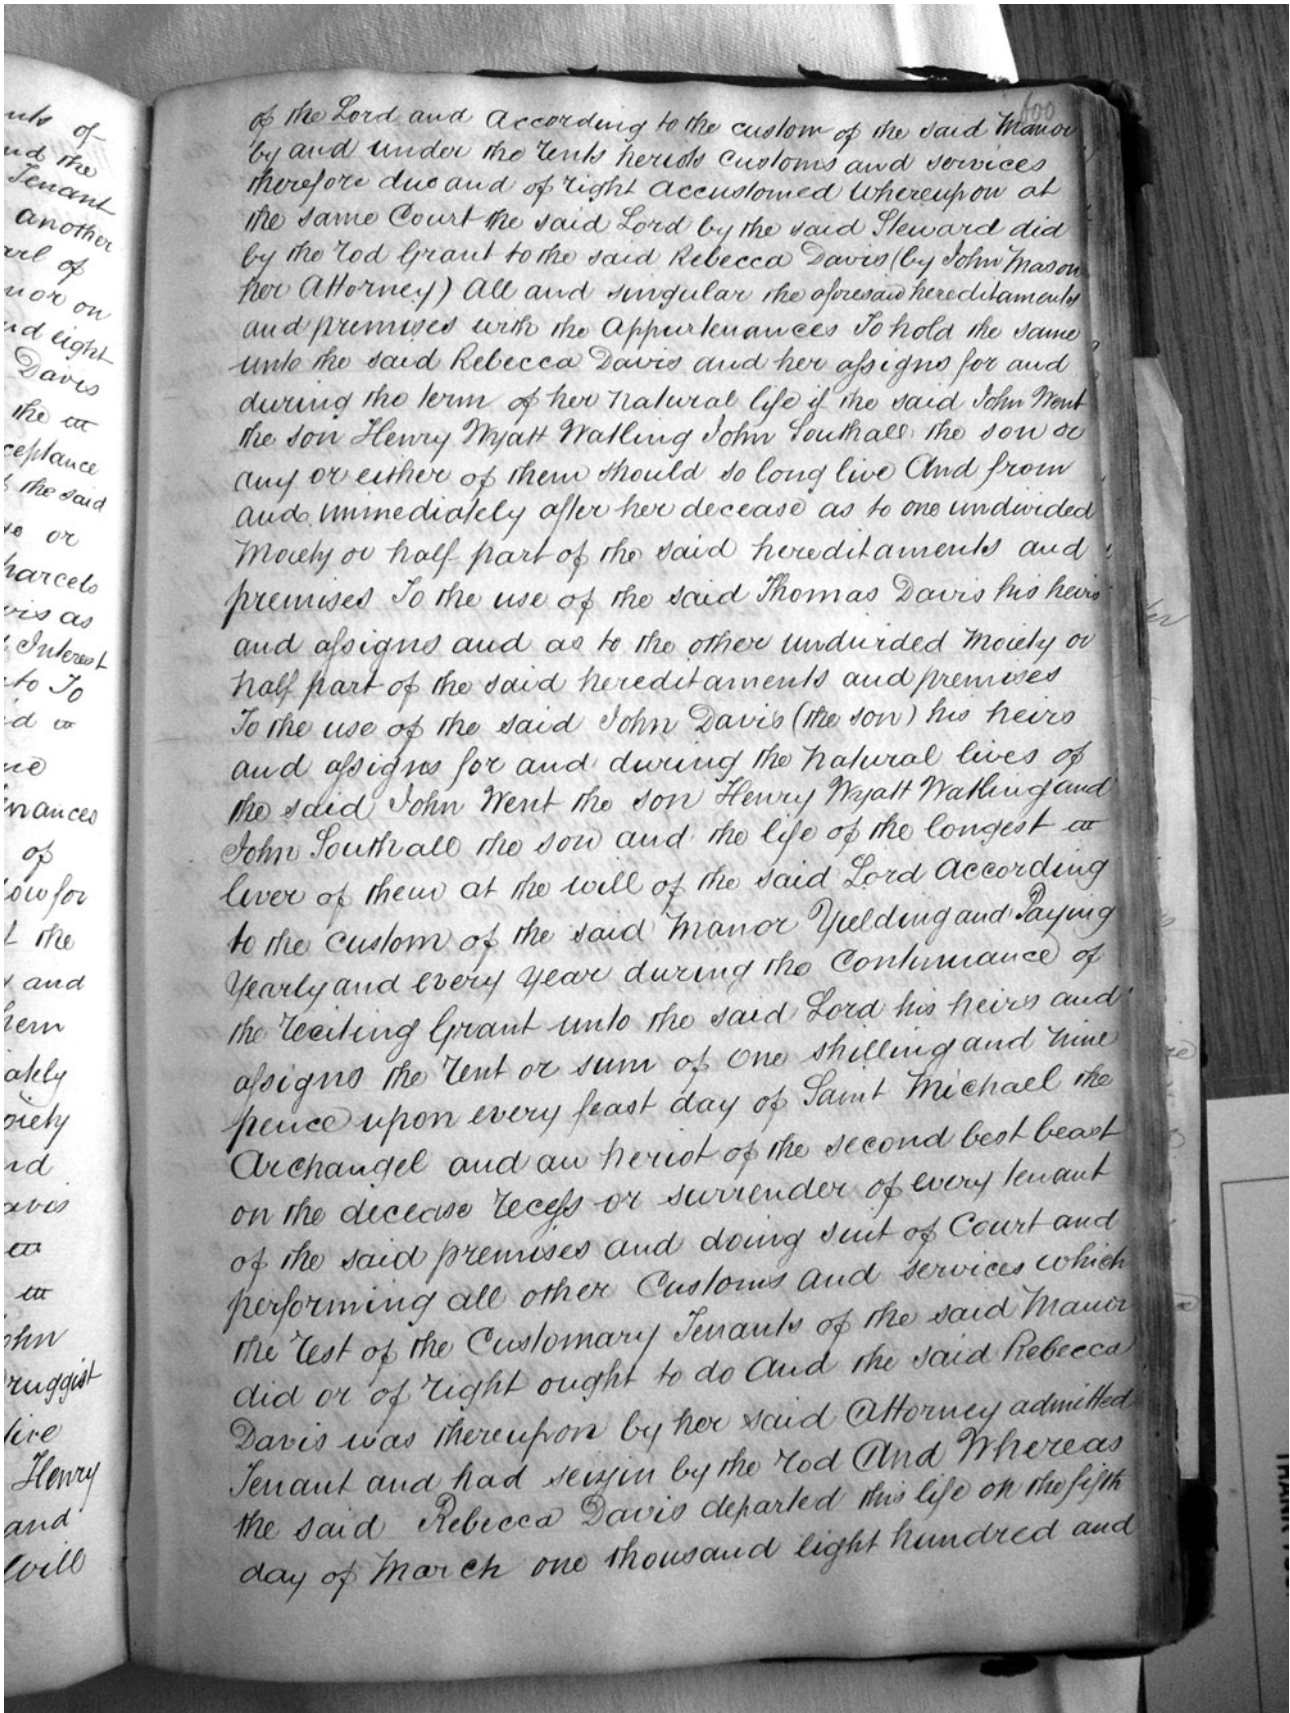 nts of
nd the
Tenant
another
arl of
nor on
nd eight
Davis
the
ceptance
the said
se or
parcels
vis as
Interest
to To
id
ne
nances
of
low for
t the
and
hem
ately
oiety
nd
avis
ohn
ruggist
live
Henry
and
Will
600
of the Lord and According to the custom of the said Manor
by and under the rents heriots Customs and services
therefore due and of right Accustomed Whereupon at
the same Court the said Lord by the said Steward did
by the rod Grant to the said Rebecca Davis (by John Mason
her Attorney) All and singular the aforesaid hereditaments
and premises with the Appurtenances To hold the same
unto the said Rebecca Davis and her assigns for and
during the term of her natural life if the said John Went
the son Henry Wyatt Watling John Southall the son or
any or either of them should so long live And from
and immediately after her decease as to one undivided
Moiety or half part of the said hereditaments and
premises To the use of the said Thomas Davis his heirs
and assigns and as to the other undivided Moiety or
half part of the said hereditaments and premises
To the use of the said John Davis (the son) his heirs
and assigns for and during the natural lives of
the said John Went the son Henry Wyatt Watling and
John Southall the son and the life of the longest
liver of them at the will of the said Lord According
to the custom of the said Manor Yielding and Paying
Yearly and every Year during the Continuance of
the reciting Grant unto the said Lord his heirs and
assigns the rent or sum of One shilling and nine
pence upon every feast day of Saint Michael the
Archangel and an heriot of the second best beast
on the decease recess or surrender of every tenant
of the said premises and doing suit of Court and
performing all other Customs and services which
the rest of the Customary Tenants of the said Manor
did or of right ought to do And the said Rebecca
Davis was thereupon by her said Attorney admitted
Tenant and had seizin by the rod And Whereas
the said Rebecca Davis departed this life on the fifth
day of March one thousand eight hundred and